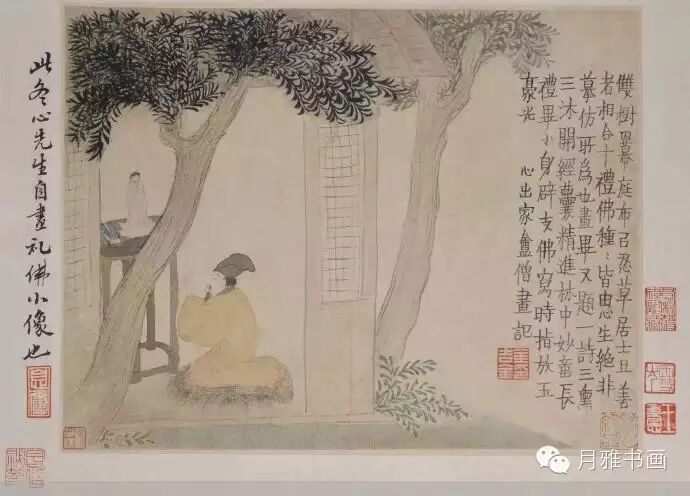 雙樹羃庭布召忍草居士且善
者相合十禮佛種:皆由思生絕非
摹仿所為也畫畢又題一詩三熏
三沐開經囊精進林中妙音長
禮畢小身辟支佛寫時指放玉
豪光 心出家盦僧畫記
此冬心先生自畫礼佛小像也
月雅书画